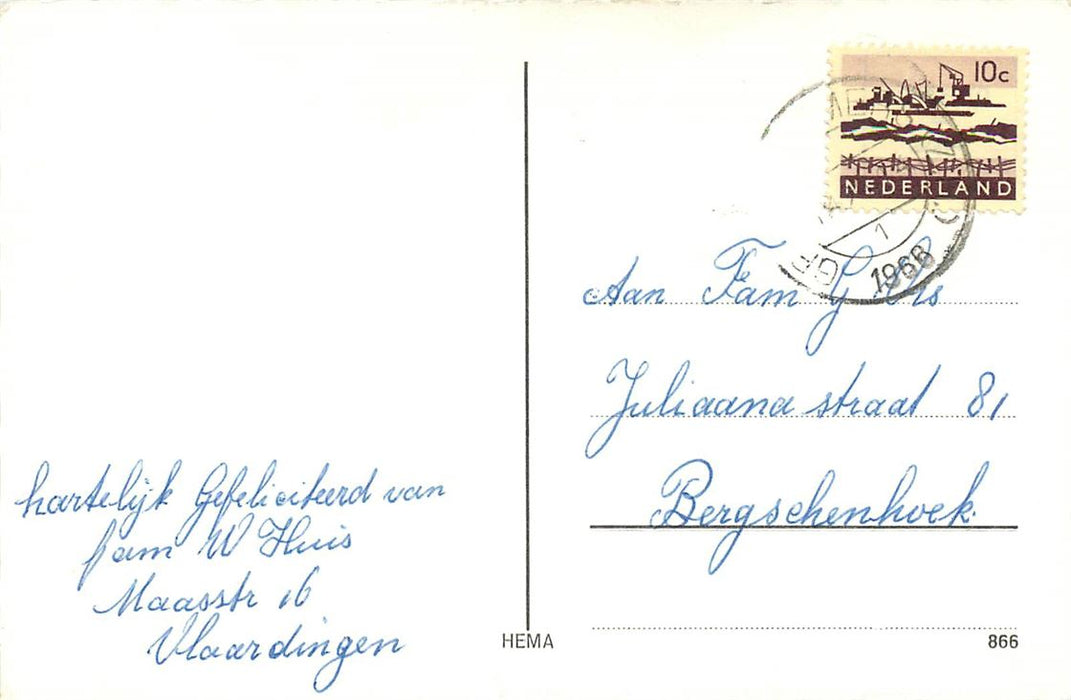 hartelijk Gefeliciteerd van
fam W Huis
Maasstr 16
Vlaardingen
10c
NEDERLAND
1
1966
Aan Fam G Vis
Juliaana straat 81
Bergschenhoek.
HEMA
866